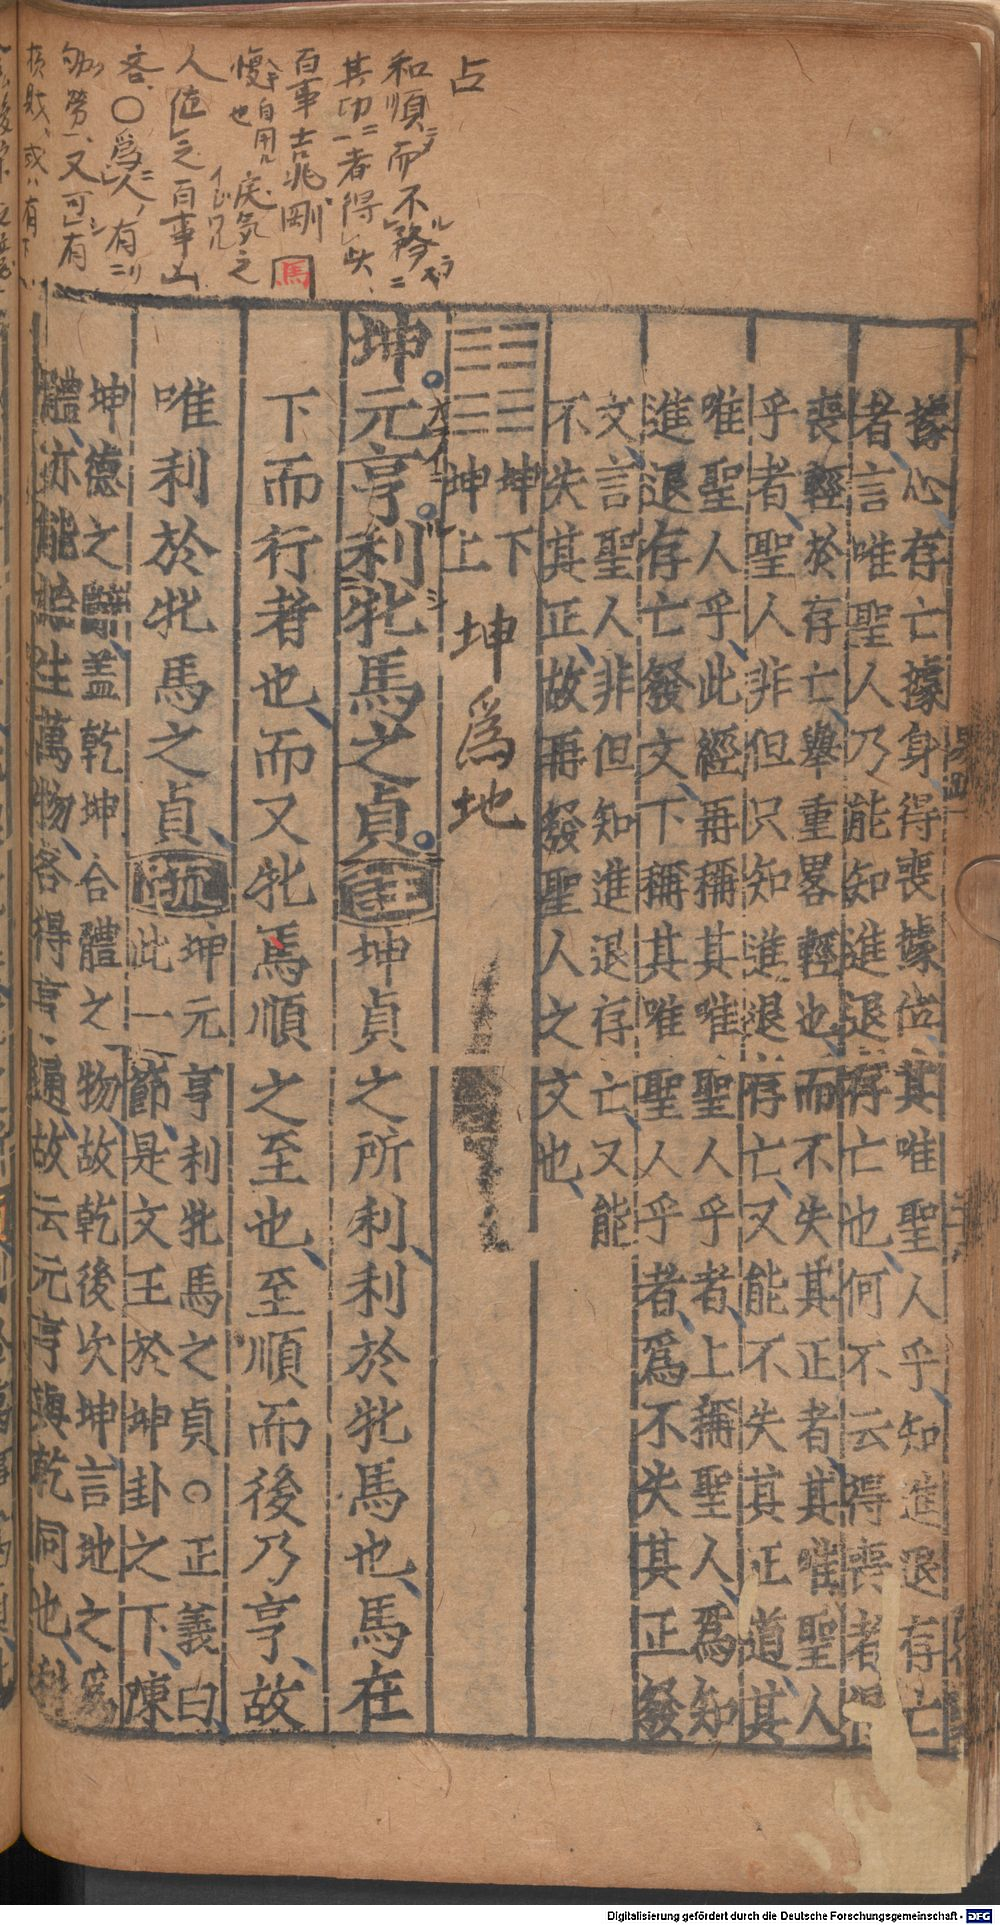 占
和順而不務
其功者得失
百事吉兆剛
慢自用戻気之
人値之百事凶
吝〇爲人有
劬勞又可有
損財或ハ有下
據心存亡據身得喪據位其唯聖人乎知進退存亡
者言唯聖人乃能知進退存亡也何不云得喪者得
喪輕於存亡舉重畧輕也而不失其正者其唯聖人
乎者聖人非但只知進退存亡又能不失其正道其
唯聖人乎此經再稱其唯聖人乎者上稱聖人爲知
進退存亡發文下稱其唯聖人乎者爲不失其正發
文言聖人非但知進退存亡又能
不失其正故再發聖人之文也
坤下
坤上
坤爲地
坤元亨利牝馬之貞註坤貞之所利利於牝馬也馬在
下而行者也而又牝馬順之至也至順而後乃亨故
唯利於牝馬之貞疏坤元亨利牝馬之貞〇正義曰
此一節是文王於坤卦之下陳
坤德之辭盖乾坤合體之物故乾後次坤言地之爲
體亦能始生萬物各得亨通故云元亨與乾同也利
Digitalisierung gefördert durch die Deutsche Forschungsgemeinschaft - DFG